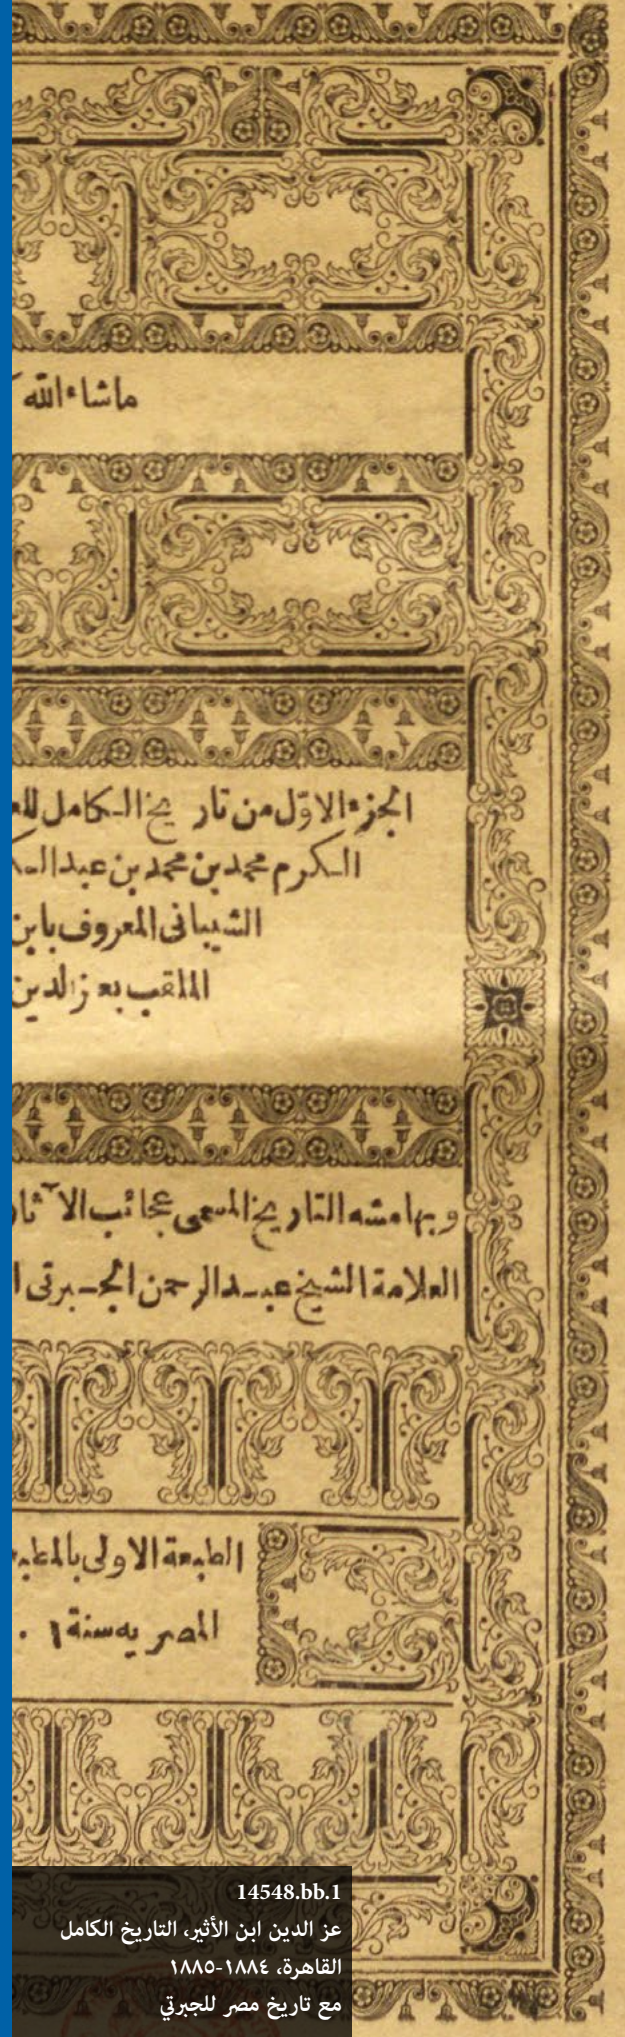 ماشاء الله
الجزء الاوّل من تاريخ الكامل
الكرم محمد بن محمد بن
الشيبانى المعروف بابن
الملقب بعز الدين
وبهامشه التاريخ المسمى عجائب الآثار
العلامة الشيخ عبد الرحمن الجبرتى
الطبعة الاولى
المصريه سنة
14548.bb.1
عز الدين ابن الأثير، التاريخ الكامل
القاهرة، ١٨٨٤-١٨٨٥
مع تاريخ مصر للجبرتي